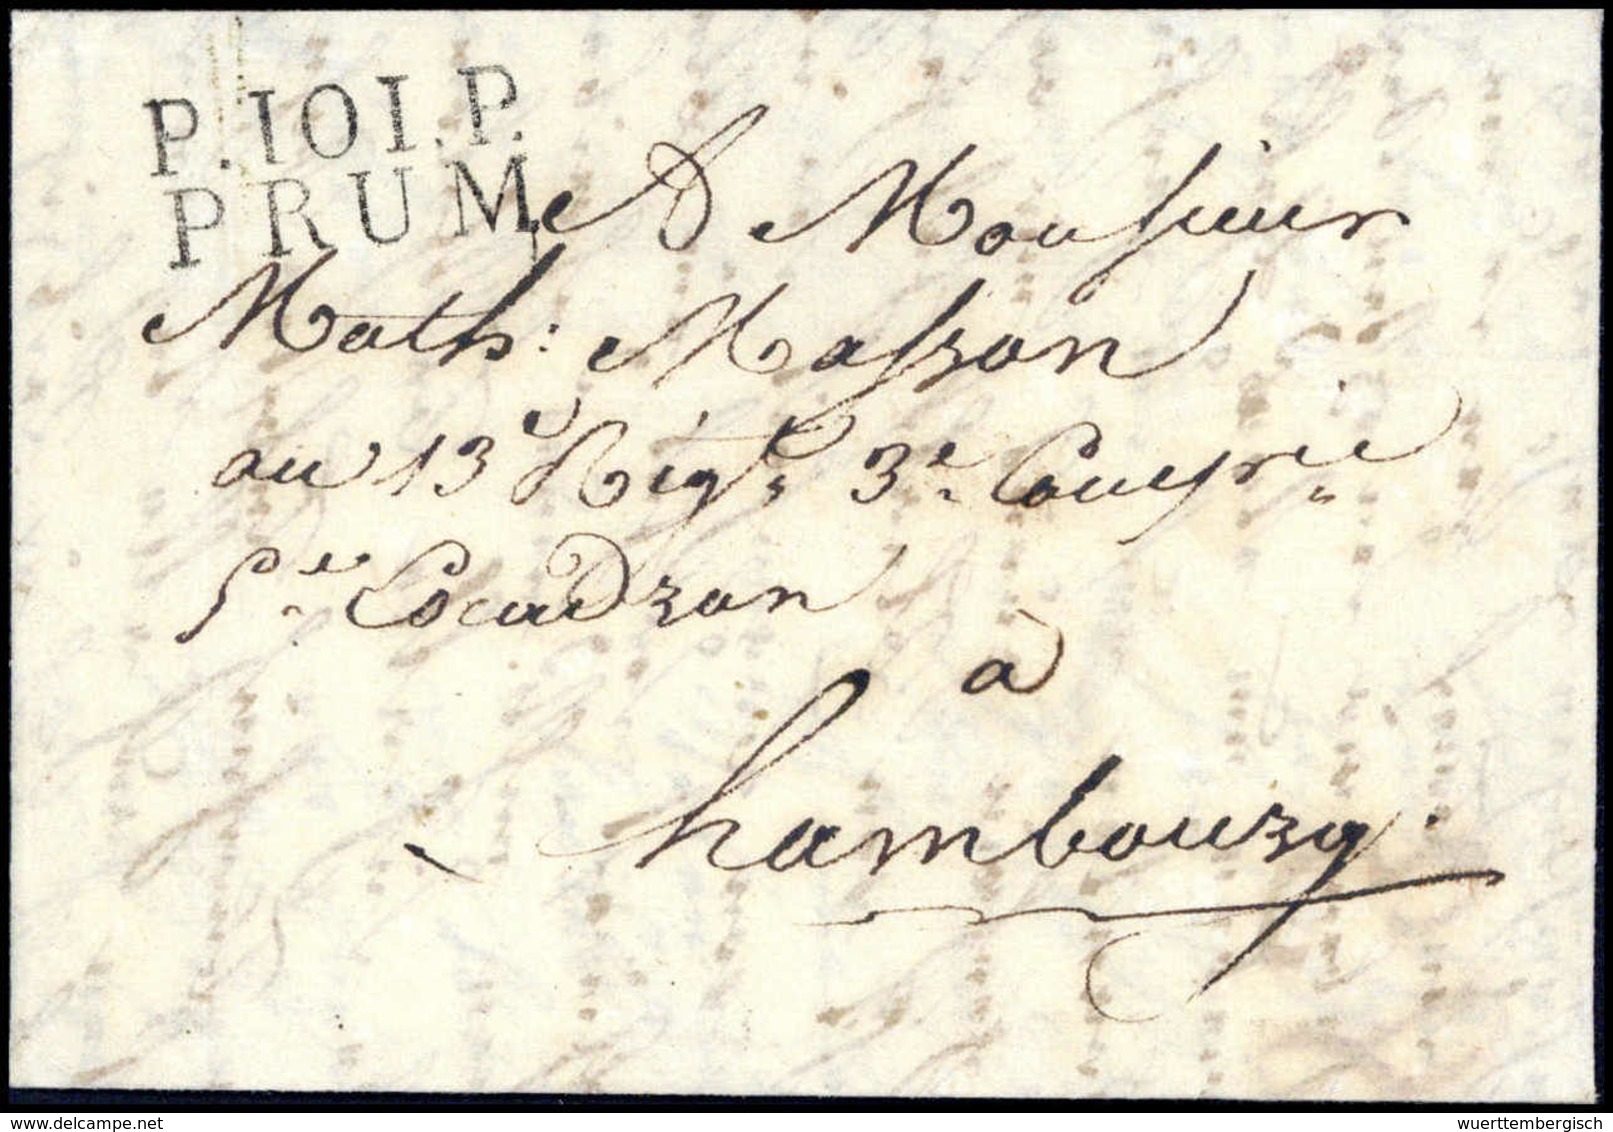 P.101.P.
PRUM
A Monsieur
Math: Masson
au 13e Rigt. 3e. Compnie
5e. Escadron
à
hambourg.
delcampe.net
wuerttembergisch